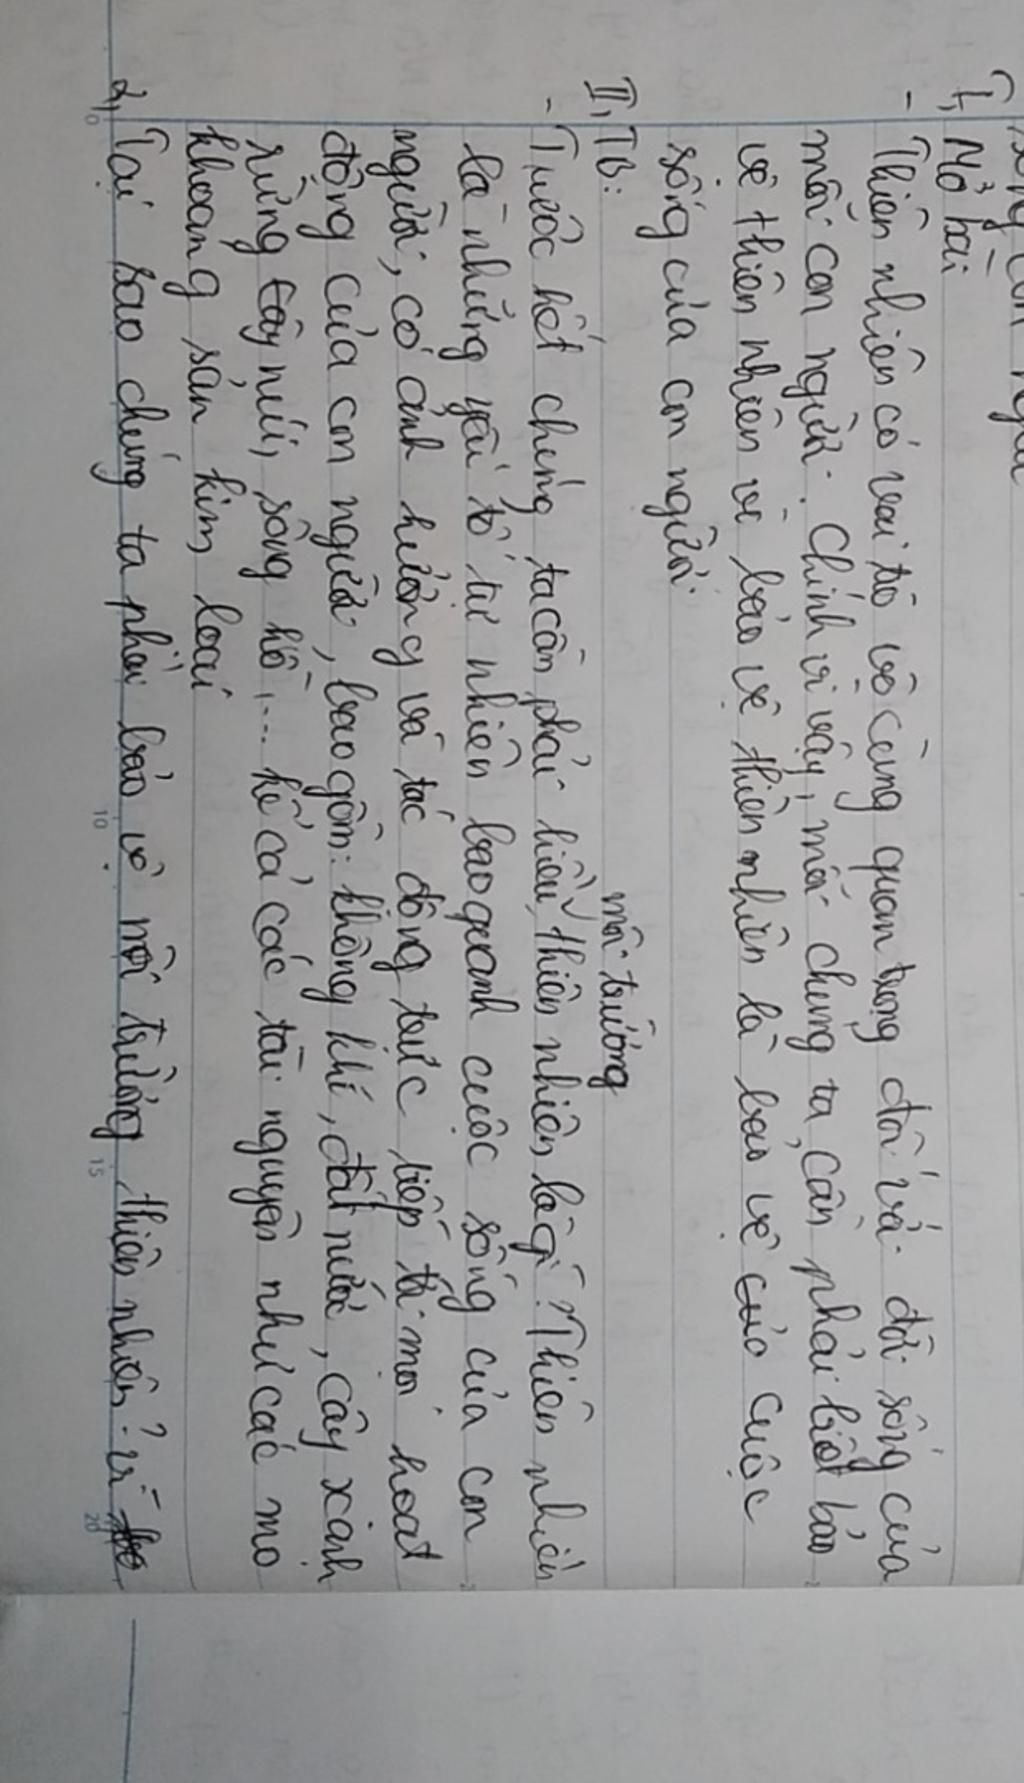 sống con người
I, Mở bài
- Thiên nhiên có vai trò vô cùng quan trọng đối với đời sống của
mỗi con người. Chính vì vậy, mỗi chúng ta cần phải biết bảo
vệ thiên nhiên vì bảo vệ thiên nhiên là bảo vệ cuộc
sống của con người.
II, TB:
môi trường
- Trước hết chúng ta cần phải hiểu, thiên nhiên là gì? Thiên nhiên
là những yếu tố tự nhiên bao quanh cuộc sống của con
người, có ảnh hưởng và tác động trực tiếp tới mọi hoạt
động của con người, bao gồm: không khí, đất nước, cây xanh
rừng cây núi, sông hồ,... kể cả các tài nguyên như các mỏ
khoáng sản kim loại
2, Tại sao chúng ta phải bảo vệ môi trường thiên nhiên? vì